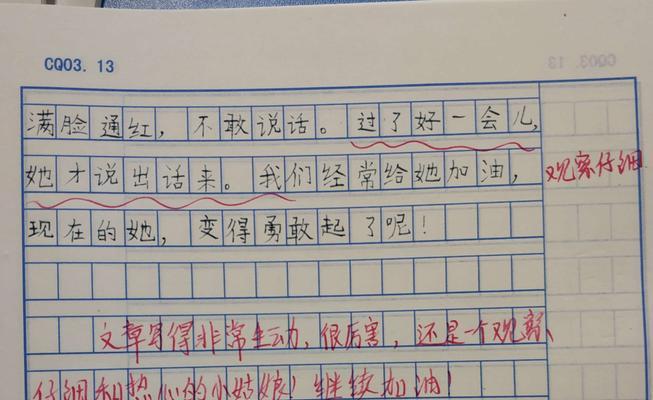 CQ03. 13
满脸通红，不敢说话。过了好一会儿，
她才说出话来。我们经常给她加油，
观察仔细
现在的她，变得勇敢起了呢！
文章写得非常生动，很厉害，还是一个观察
仔细和热心的小姑娘！继续加油！